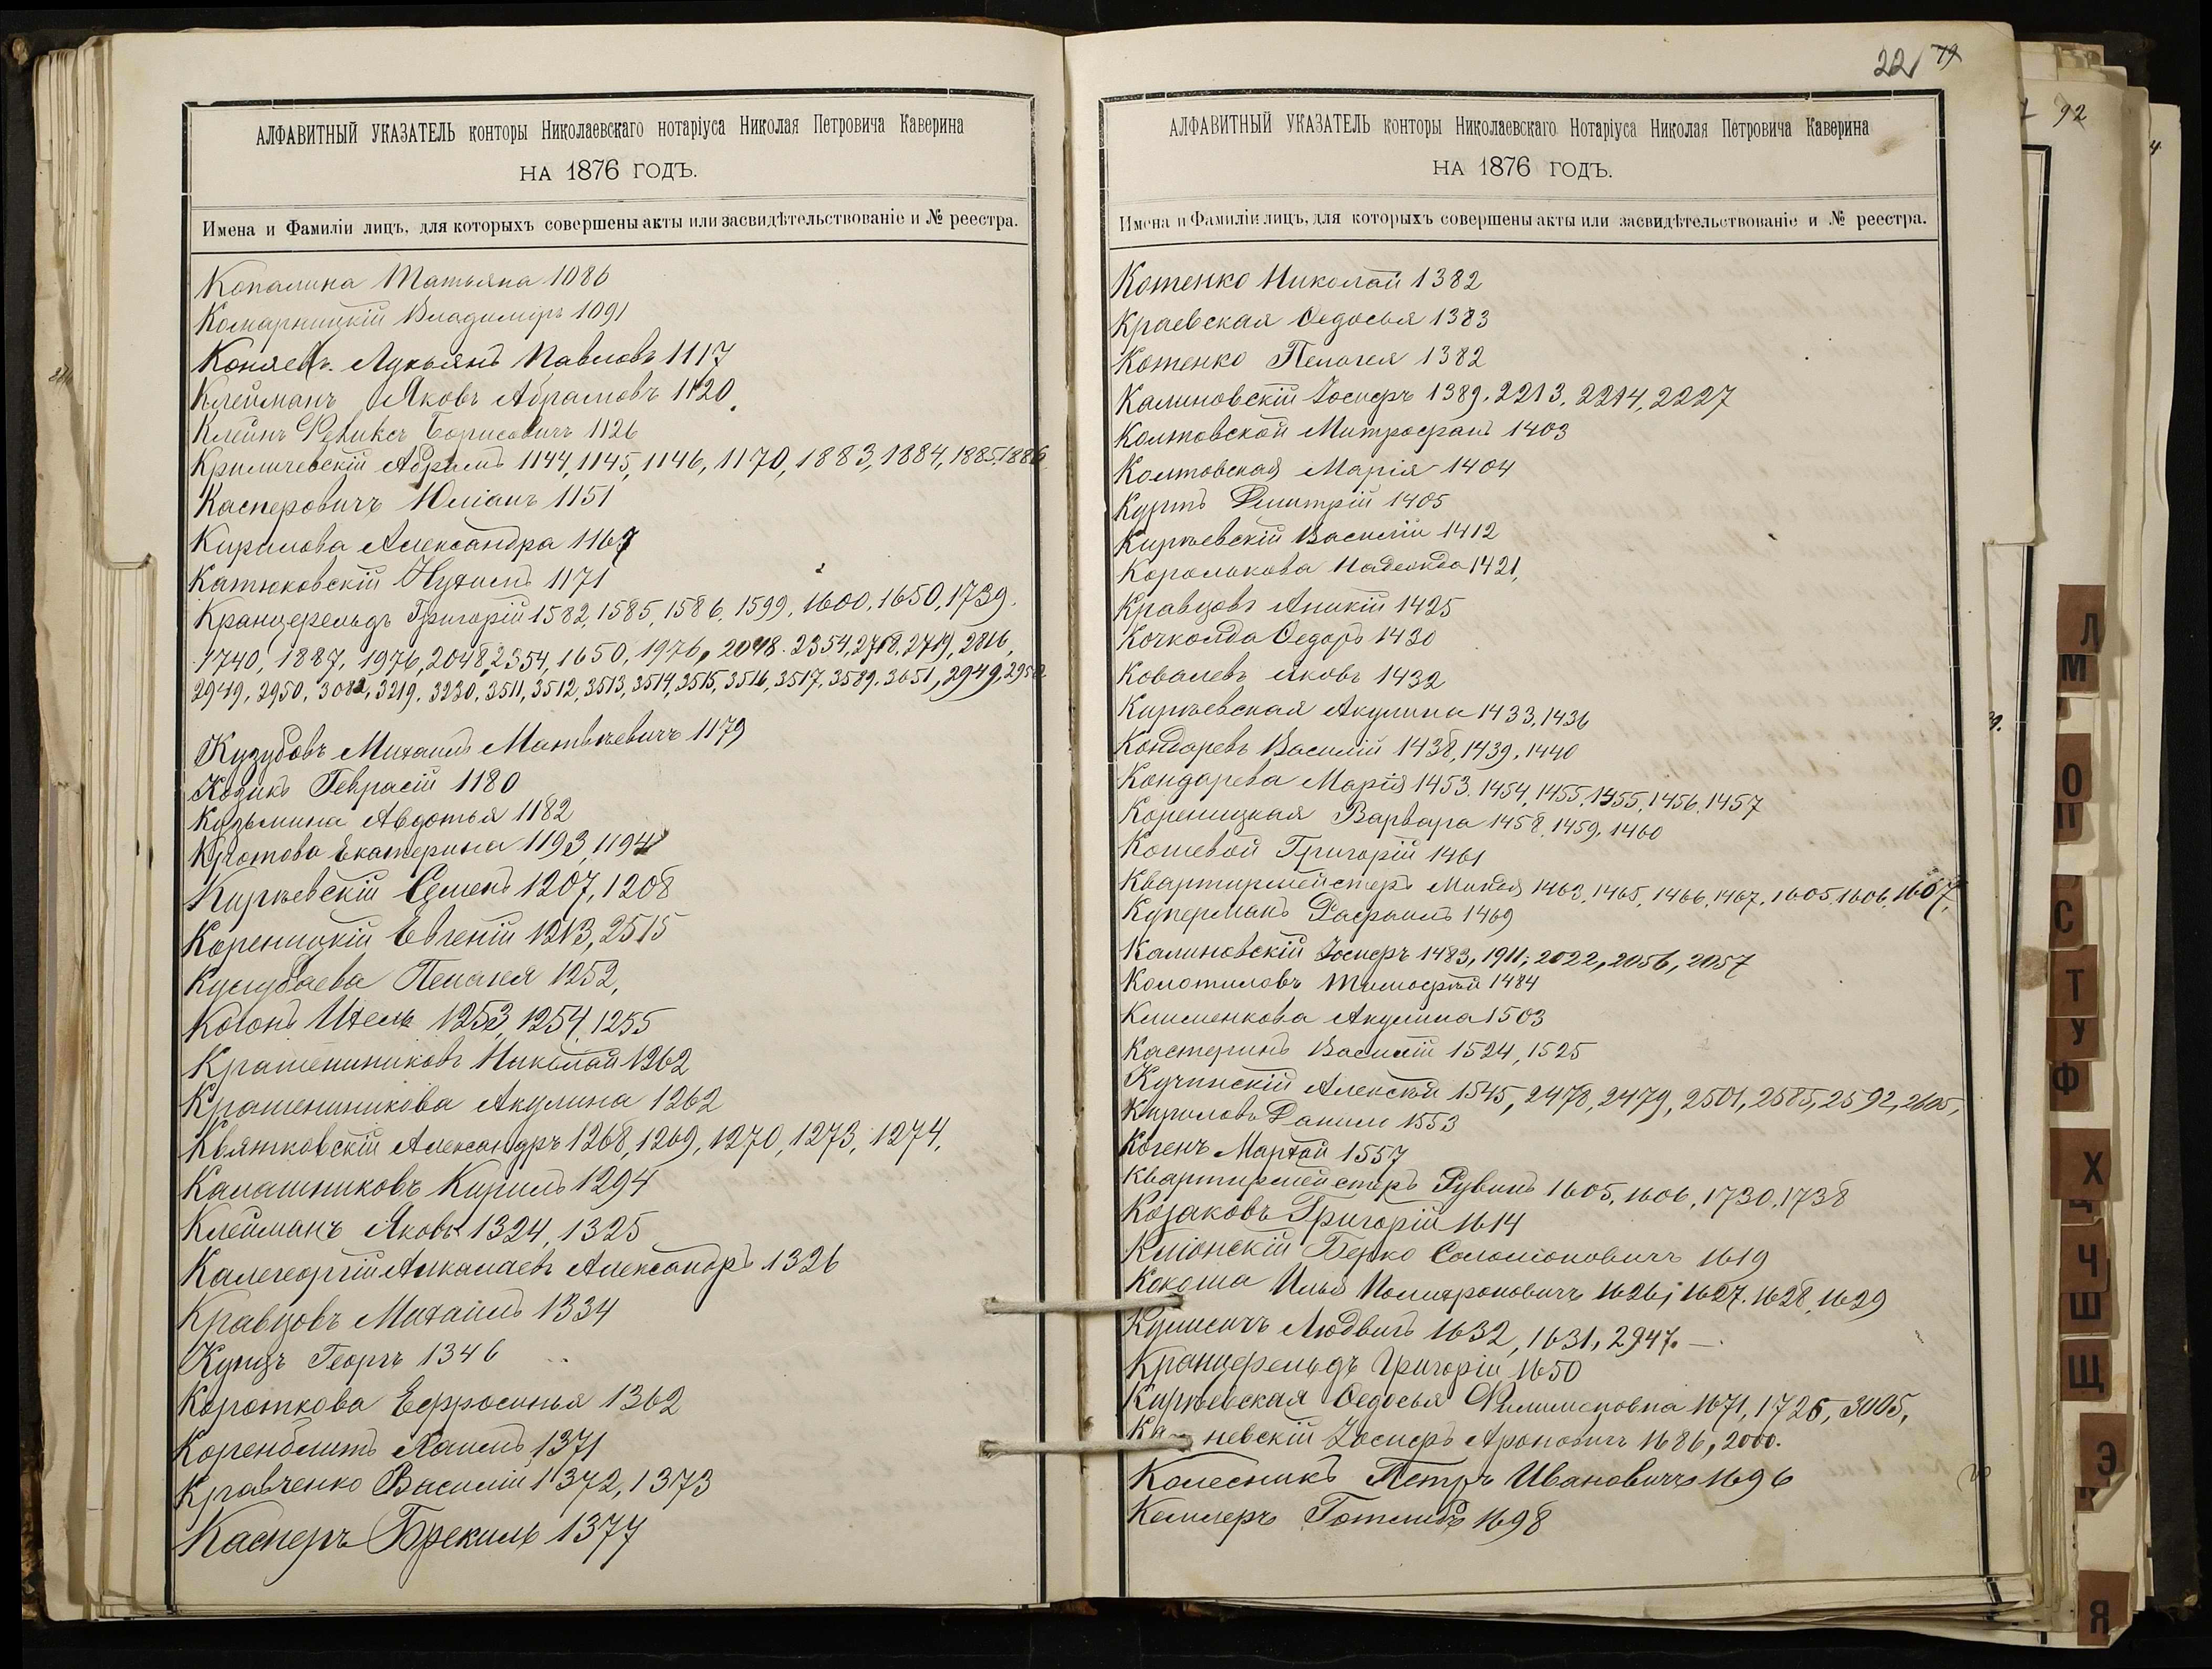 АЛФАВИТНЫЙ УКАЗАТЕЛЬ конторы Николаевскаго нотаріуса Николая Петровича Каверина
НА 1876 ГОДЪ.
Имена и Фамиліи лицъ, для которыхъ совершены акты или засвидѣтельствованіе и № реестра.
Копалина Татьяна 1086
Комарницкій Владиміръ 1091
Коняевъ Лукьянъ Павловъ 1117
Клейманъ Яковъ Абрамовъ 1120
Клейнъ Феликсъ Борисовичъ 1126
Криличевскій Абрамъ 1144, 1145, 1146, 1170, 1883, 1884, 1885, 1886
Касперовичъ Юліанъ 1151
Кирилова Александра 1167
Катюковскій Нухимъ 1171
Кранцфельдъ Григорій 1582, 1585, 1586, 1599, 1600, 1650, 1739.
1740, 1887, 1976, 2048, 2354, 1650, 1976, 2048. 2354, 2718, 2719, 2816,
2949, 2950, 3082, 3219, 3230, 3511, 3512, 3513, 3514, 3515, 3516, 3517, 3589. 3651, 2949, 2950
Кузубовъ Михаилъ Матвѣевичъ 1179
Козикъ Геврасій 1180
Кузьмина Авдотья 1182
Кротова Екатерина 1193, 1194
Кирѣевскій Семенъ 1207, 1208
Кореницкій Евгеній 1213, 2515
Пелагея 1252,
Когонъ Ихель 1253, 1254, 1255
Крашениниковъ Николай 1262
Крашениникова Акулина 1262
Квятковскій Александръ 1268, 1269, 1270, 1273, 1274,
Калашниковъ Кирилъ 1294
Клейманъ Яковъ 1324, 1325
Калегеоргій Александръ 1326
Кравцовъ Михаилъ 1334
Кунцъ Георгъ 1346
Короткова Ефросинья 1362
Коренблитъ Хаимъ 1371
Кравченко Василій 1372, 1373
Касперъ 1377
22 79
АЛФАВИТНЫЙ УКАЗАТЕЛЬ конторы Николаевскаго Нотаріуса Николая Петровича Каверина
НА 1876 ГОДЪ.
Имена и Фамиліи лицъ, для которыхъ совершены акты или засвидѣтельствованіе и № реестра.
Котенко Николай 1382
Краевская Ѳедосья 1383
Котенко Пелагея 1382
Калиновскій Іосифъ 1389, 2213, 2214, 2227
Колтовской Митрофанъ 1403
Колтовская Марія 1404
Куртъ Дмитрій 1405
Кирѣевскій Василій 1412
Королькова Надежда 1421,
Кравцовъ Аникій 1425
Кочколда Ѳедоръ 1430
Ковалевъ Яковъ 1432
Кирѣевская Акулина 1433, 1436
Кондаревъ Василій 1438, 1439, 1440
Кондарева Марія 1453. 1454, 1455, 1455, 1456, 1457
Кореницкая Варвара 1458, 1459, 1460
Кошевой Григорій 1461
Квартирмейстеръ 1463, 1465, 1466, 1467, 1605, 1606, 1607,
Куперманъ Рафаилъ 1469
Калиновскій Іосифъ 1483, 1911; 2022, 2056, 2057
Колотиловъ Тимофѣй 1484
Клименкова Акулина 1503
Кастеринъ Василій 1524, 1525
Кучинскій Алексѣй 1545, 2478, 2479, 2501, 2585, 2592, 2605,
Кириловъ Данило 1553
Когенъ Мартхай 1557
Квартирмейстеръ Рувинъ 1605, 1606, 1730, 1738
Козаковъ Григорій 1614
Кліонскій Берко Соломоновичъ 1619
Кокоша Илья 1626; 1627. 1628, 1629
Людвигъ 1632, 1631, 2947. —
Кранцфельдъ Григорій 1650
Кирѣевская Ѳедосья Филимоновна 1671, 1725, 3005,
невскій Іосифъ Ароновичъ 1686, 2000.
Колесникъ Петръ Ивановичъ 1696
Келлеръ Готлибъ 1698
92
Л
М
О
П
С
Т
У
Ф
Х
Ц
Ч
Ш
Щ
Э
Я